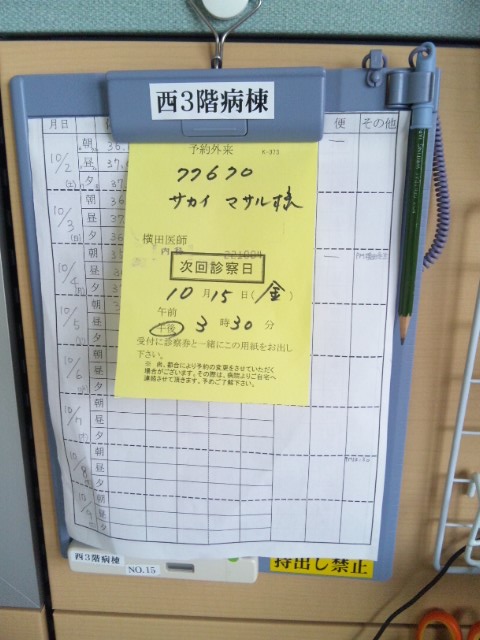 西3階病棟
月日
便
その他
予約外来 K-373
77670
サカイ マサル様
横田医師
内科 221004
次回診察日
10月15日(金)
午前
午後 3時30分
受付に診察券と一緒にこの用紙をお出し
下さい。
※ 尚、都合により予約の変更をさせていただく
場合がございます。その際は、病院よりご自宅へ
連絡させて頂きます。予めご了解下さい。
10/2
(土)
朝 36.
昼 37.
夕 37.
10/3
(日)
朝 36
昼 37
夕 36
10/4
朝
昼
夕
10/5
朝
昼
夕
10/6
朝
昼
夕
10/7
朝
昼
夕
10/8
朝
昼
夕
10/9
朝
昼
夕
西3階病棟
NO.15
持出し禁止